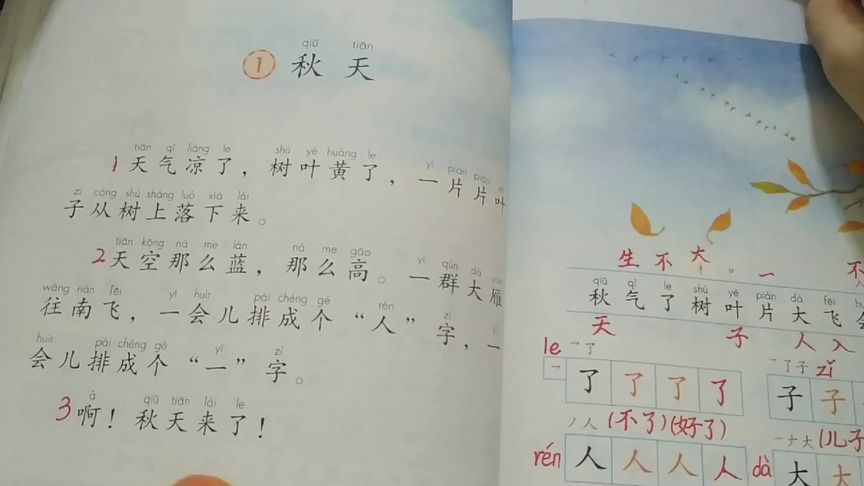 qiū tiān
1 秋天
tiān qì liáng le shù yè huáng le yí piàn piàn yè
1天气凉了，树叶黄了，一片片叶
zi cóng shù shàng luò xià lái
子从树上落下来。
tiān kōng nà me lán nà me gāo yì qún dà yàn
2天空那么蓝，那么高。一群大雁
wǎng nán fēi yí huìr pái chéng gè rén zì yí
往南飞，一会儿排成个“人”字，一
huìr pái chéng gè yī zì
会儿排成个“一”字。
à qiū tiān lái le
3啊！秋天来了！
生 不 大 一 不
qiū qì le shù yè piàn dà fēi huì
秋气了树叶片大飞会
天 子 人 入
le 乛了
乛 了 了 了 了
乛了子 zǐ
子 子
丿人 (不了)(好了)
rén 人 人 人 人
一ナ大 (儿子
dà 大 大